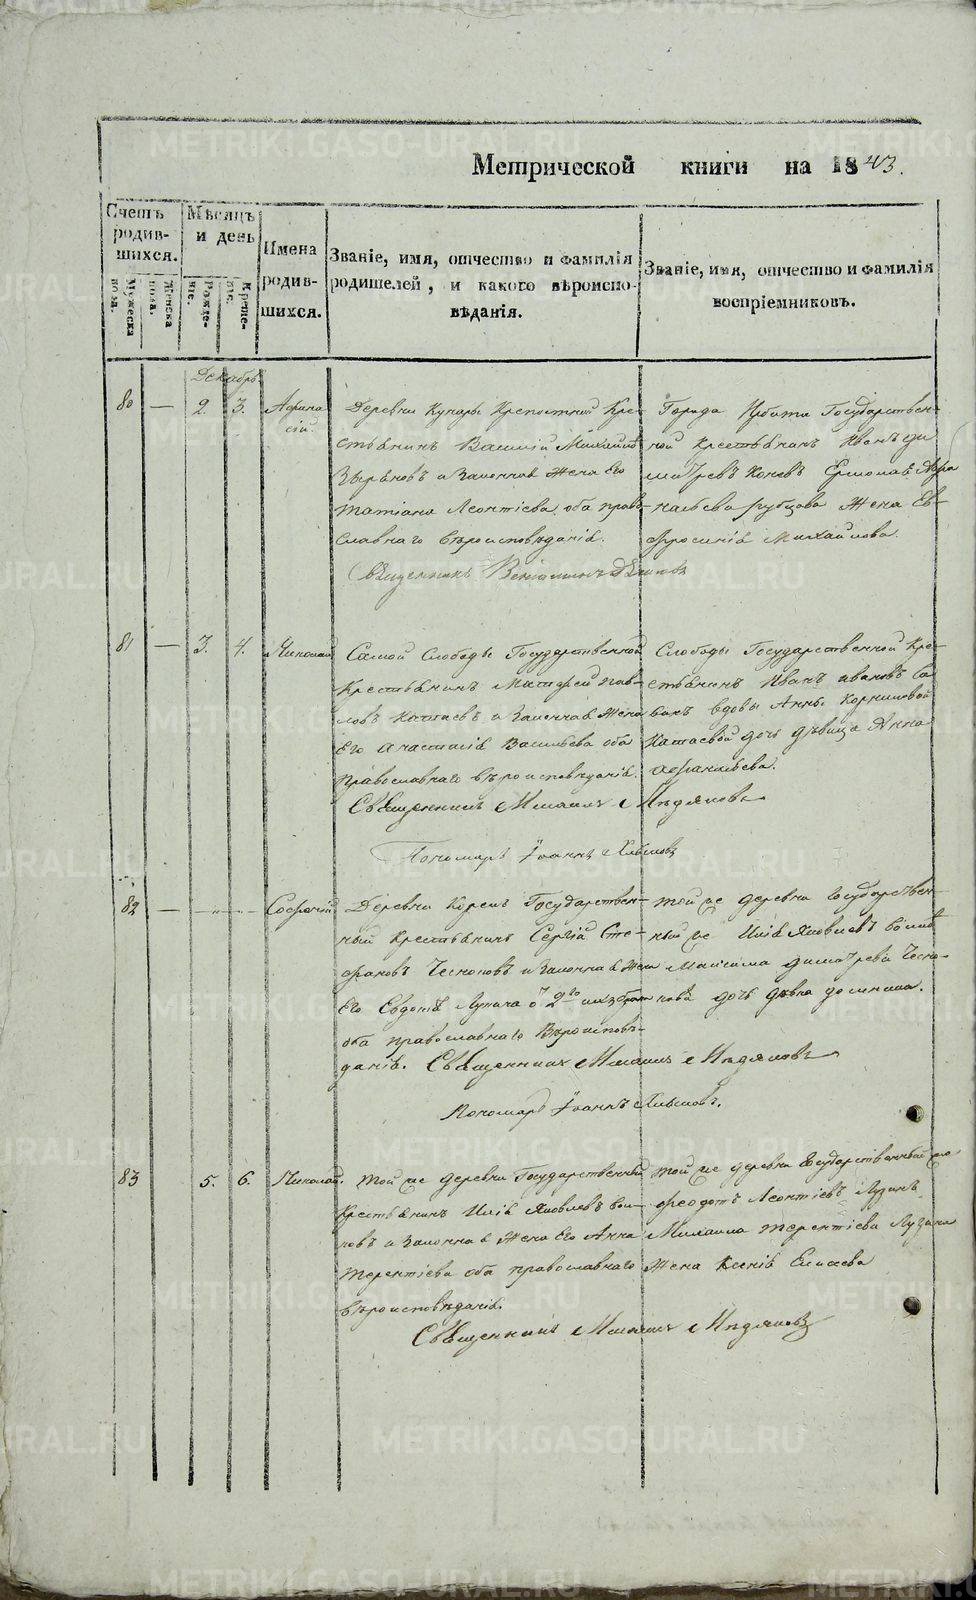 Метрической книги на 1843.
Счетъ родив-шихся.
Мѣсяцъ и день
Имена родив-шихся.
Званіе, имя, отчество и фамилія родителей, и какого вѣроиспо-вѣданія.
Званіе, имя, отчество и фамилія воспріемниковъ.
Мужеска пола.
Женска пола.
Рожде-ніе.
Креще-ніе.
Декабрь
80 — 2. 3. Афана
сій.
Деревни Кучары Крепостной Кре-
стьянинъ Василій Михайловъ
и Законная Жена Его
Татіана Леонтіева оба право-
славнаго вѣроисповѣданія.
Священникъ Веніаминъ
Города Ирбита Государствен-
ной Крестьянинъ Иванъ Ди
митревъ Ермолая Афа
насьева Рубцова Жена Ев-
фросинія Михайлова.
81 — 3. 4. Николай
Самой Слободы Государственной
Крестьянинъ Матфей Пав-
ловъ Катаевъ и Законная Жена
Его Анастасія Васильева оба
Православнаго вѣроисповѣданія.
Священникъ Михаилъ Мѣдяковъ
Пономарь Іоаннъ Хлыновъ
Слободы Государственной Кре-
стьянинъ Иванъ Ивановъ
вдовы Анны Корниловой
Катаевой дочь дѣвица Анна
Афанасьева.
82 — — „ — Софоній
Деревни Корелъ Государствен-
ный Крестьянинъ Сергій Сте-
фановъ Чесноковъ и Законная Жена
Его Евдокія
оба православнаго Вѣроисповѣ-
данія. Священникъ Михаилъ Мѣдяковъ
Пономарь Іоаннъ Хлыновъ.
той же деревни Государствен-
ный же Илія Яковлевъ
Максима Димитрева Чесно-
кова дочь дѣвка Домника.
83 5. 6. Николай.
Той же деревни Государственный
Крестьянинъ Илія Яковлевъ
и Законная Жена Его Анна
Терентіева оба православнаго
вѣроисповѣданія.
Священникъ Михаилъ Мѣдяковъ
той же деревни Государственный же
Феодотъ Леонтіевъ Лузинъ
Михаила Терентіева Лузина
Жена Ксенія Елисеева